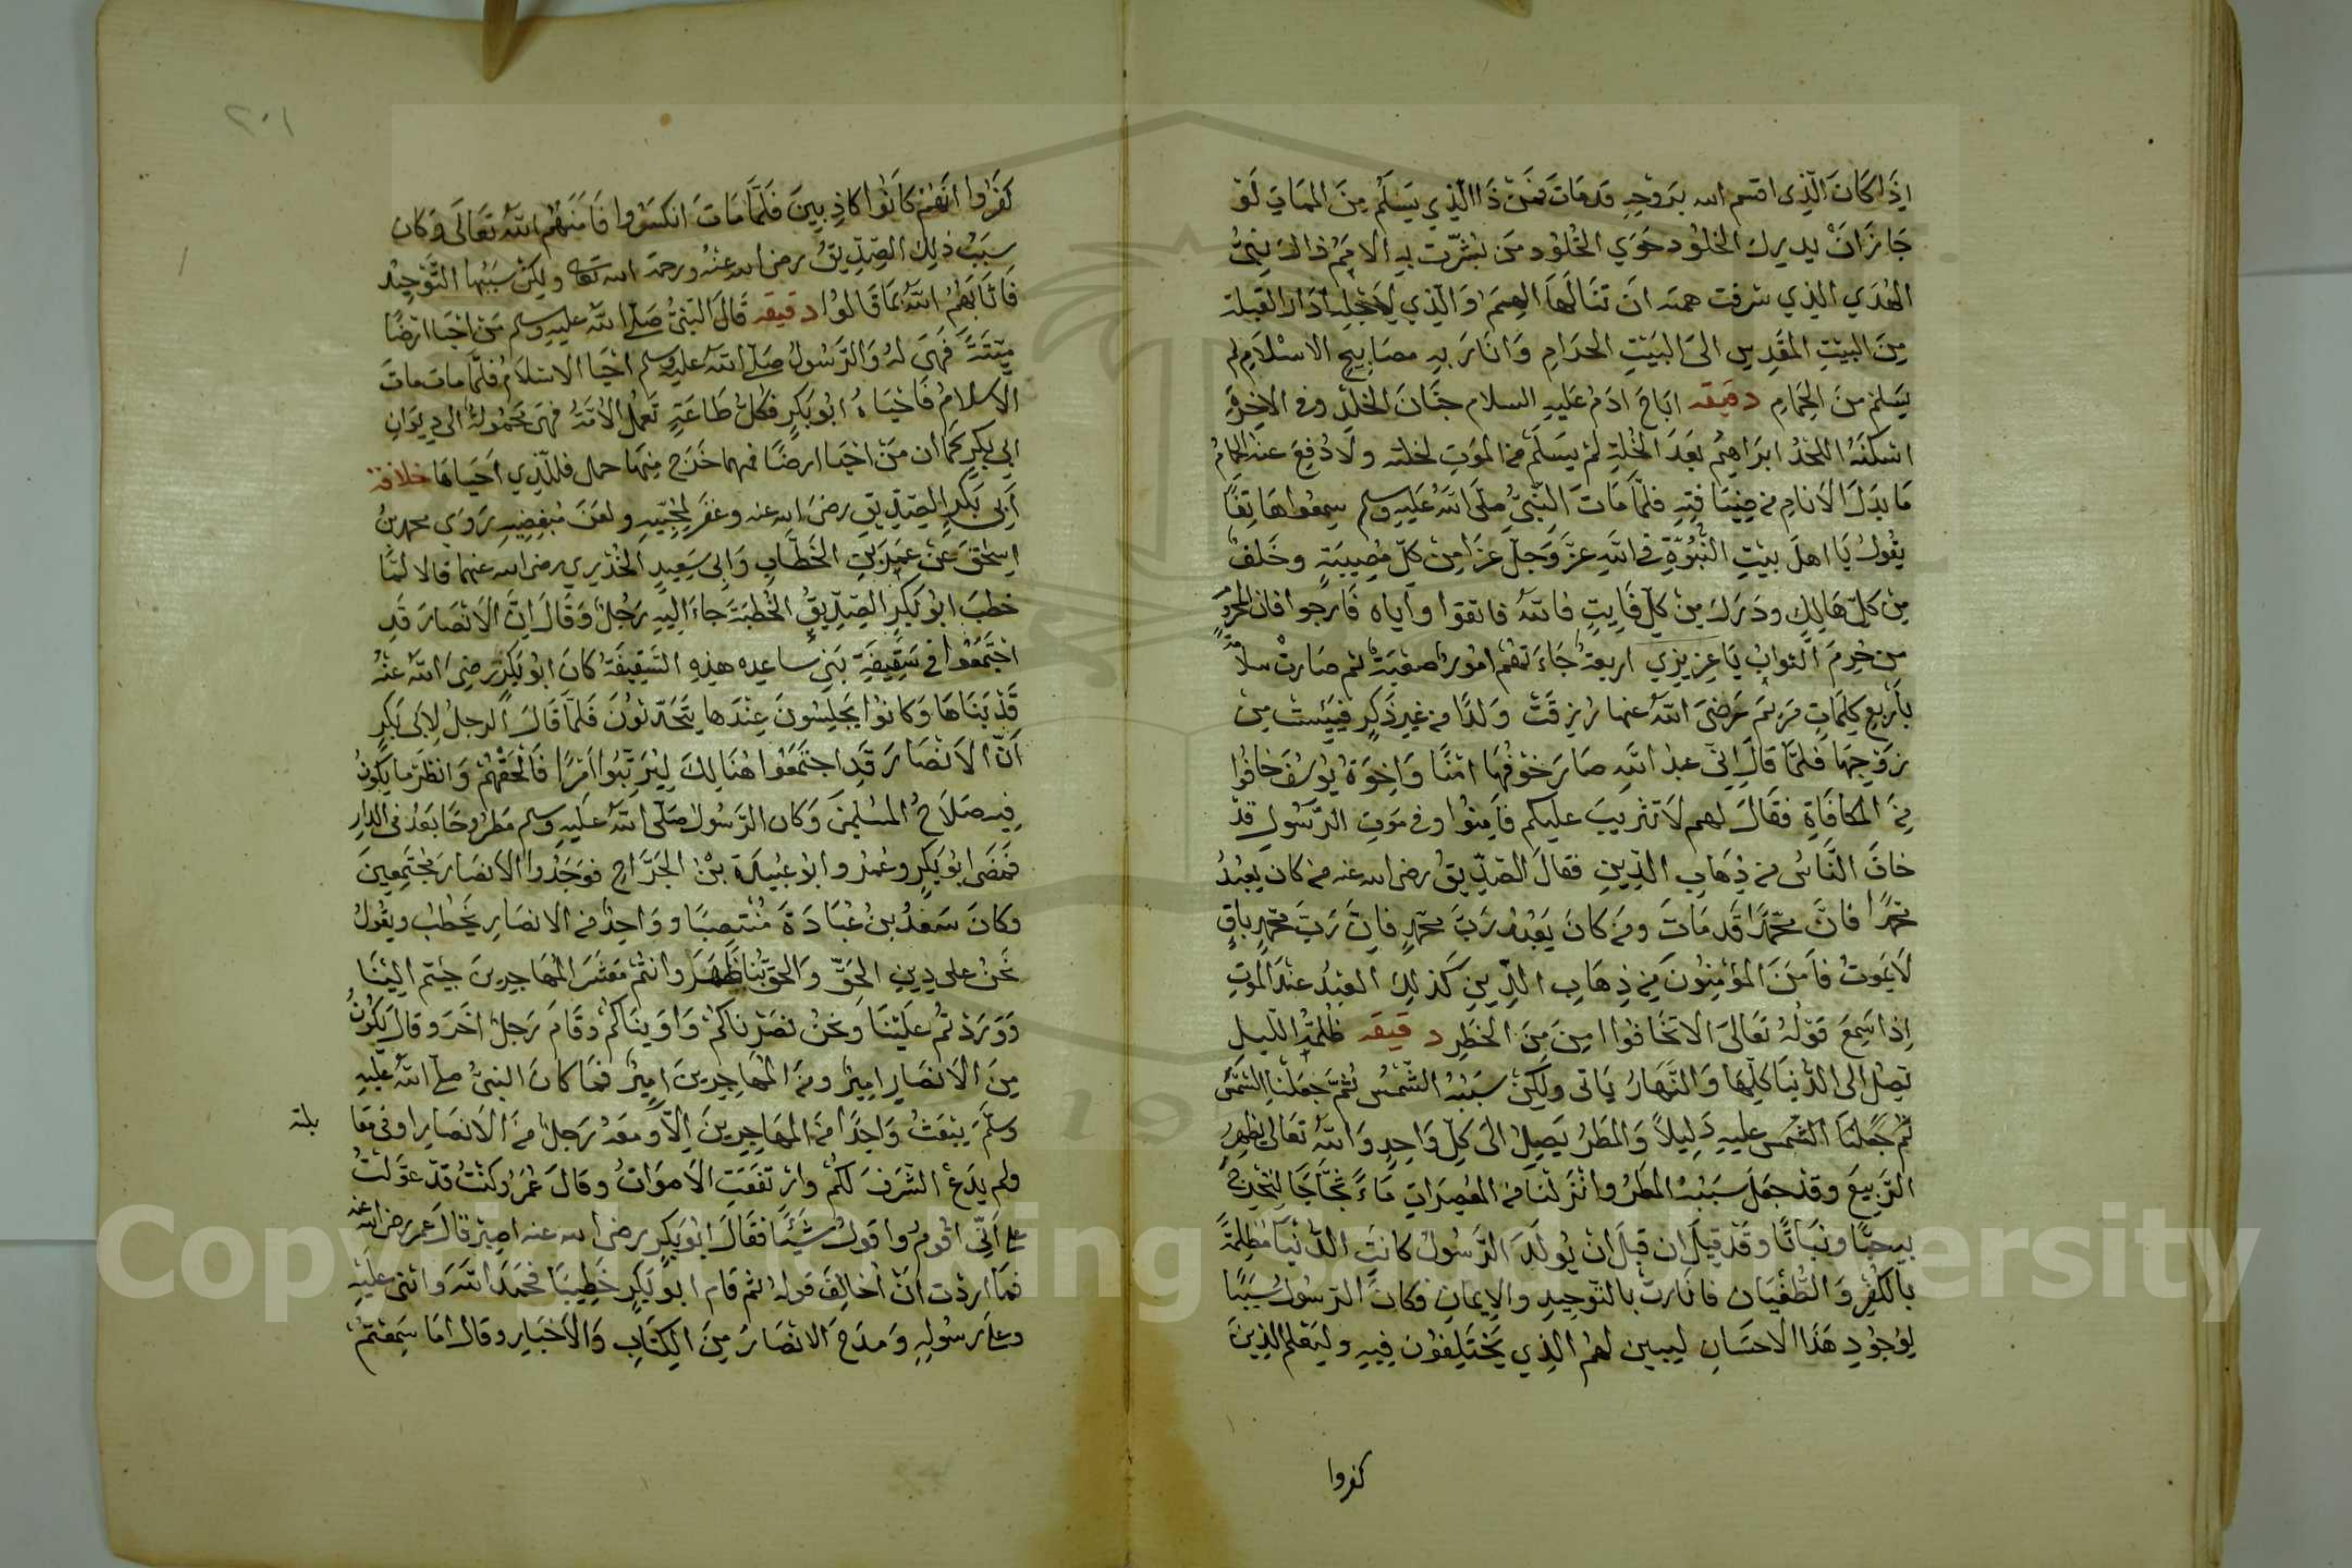 اِذَا كَانَ الَّذِي اقسم الله بِرَوْحِهِ قَدمَاتَ فمَنْ ذَا الَّذِي يَسْلَمُ مِنَ الممَاتِ لَوْ
جَازَ اَنْ يدرك الخلُود حَوَي الخلُود مَن بُشّرت بِهِ الاُمَمُ ذاكَ نبيّ
الهُدَي الذِي شرفت همته اَن تنَالَهَا الهِمَمَ وَالّذِي لِاَجْلِهِ ادَار القبلة
مِنَ البيْتِ المقَدِس الىَ البَيْتِ الحرَامِ وَانَارَ بِهِ مصَابِيحِ الاسْلَامِ لم
يَسْلم منَ الحِمَامِ دقيقه ابَاحَ ادَمُ عَلَيهِ السلام جنَّانَ الخلْدِ وفى الاخِرةِ
اسْكَنَهُ اللحدُ ابرَاهِيمُ بَعَدَ الخُلّةِ لمْ يَسلَمْ مِنَ الموَتِ لخلته ولَا دُفِعَ عنه الحمامُ
مَا بدَلَ الاَنامِ مِن ضِيَافتِهِ فلمَّا مَاتَ النَّبىُّ صلّىَ اللهُ عَلَيهِ وسلم سِمعُوا هَاتِفًا
يقُولُ يَا اهلَ بيْتِ النُّبُوّةِ فى اللهِ عزَّ وَجَلّ عَزَا مِنْ كلّ مُصِيبَةٍ وخَلفٌ
مِن كلّ هَالِكٍ ودَرَكَ مِنْ كلّ فَايتٍ فاللهُ فاتقوا وايَاه فَارجوا فان المحرُومَ
من حُرِمَ الثّوابُ يَاعزيزِي اربعةٌ جَاءَتهُم امُورٌ صعْبَةٌ ثم صَارتْ سلامةً
بأربَعِ كلمَاتٍ مَريَم رَضىَ اللهُ عنها رُزِقَتْ وَلدًا مِن غيرِ ذَكَرٍ فيئستْ مِن
زَوْجِهَا فلمَّا قالَ اِنِّي عبدُ اللهِ صَارَ خوْفُهَا امْنًا وَاِخوَةُ يُوسُفَ خافُوا
مِنَ المكافَاةِ فقَالَ لهم لاَ تثريبَ عليكم فَاَمِنُوا وفى مَوَتِ الرَّسُولِ قدْ
خافَ النَّاسُ مِن ذِهَابِ الدِّينِ فقالَ الصِّدِّيقُ رضى الله عنه من كان يعبُدُ
محمّدًا فانَّ محمّدًا قَدمَاتَ ومَن كانَ يَعْبُدُ رَبَّ محمّدٍ فاِنَّ رَبَّ محمّدٍ باقٍ
لَا يَمَوتُ فاَمِنَ المؤمِنُونَ مِن ذِهَابِ الدِّينِ كَذلِكَ العَبْدُ عندَ الموتِ
اِذا سَمِعَ قَوْلَهُ تَعَالىَ الاَ تخَافوا امِنَ مِنَ الخطَرِ دقيقه ظُلمَةُ اللّيل
تصِلُ الى الدُّنيَا كلِّهَا وَالنّهَارُ يَاتى ولَكِنْ سَبَبُهُ الشَّمْسُ ثُمَّ جَعَلْنا الشَّمْسَ
ثُم جَعَلنَا الشَّمسَ عليهِ دَلِيلاً وَالمطَرُ يَصِلُ الىَ كلِّ وَاحِدٍ وَاللهُ تَعَالىَ يظهِرُ
الرَّبِيعَ وقدْ جعَلَ سَبَبُهُ المطَرُ وانْزَلْنَا مِن المعْصِرَاتِ مَاءً ثجَّاجًا لِنُخْرِجَ
بِهِ حَبًّا ونَبَاتًا وقَدْ قيلَ ان قبلَ ان يُولَدَ الرَّسُولُ كانتِ الدُّنْيَا مُظْلِمَةً
بالكُفْرِ وَالطُّغْيَان فانَارتْ بالتَّوحِيدِ والاِيمَانِ فكانَ الرّسُولُ سَبَبًا
لِوُجُودِ هَذَا الاحسَانِ ليبين لهُمُ الذِي يَخْتَلِفُون فِيهِ وليَعْلَم الذِينَ
كفروا
٢٠١
كَفَرُوا انّهُمْ كَانُوا كاذِبِينَ فَلَمَّا مَاتَ انكسَرُوا فَامَنَهُمُ اللهُ تَعَالىَ وَكان
سبَبُ ذلِكَ الصِّدِّيقُ رضى الله عنْهُ ورحمة الله تعالى ولِكنْ سَبَبُها التَّوْحِيْد
فَاثَابَهُمُ اللهُ بمَا قَالُوا دقيقه قَالَ النّبىُّ صَلّىَ اللهُ عليهِ وسلم مَن احْيَا ارْضًا
مَيّتَةً فَهىَ لَهُ وَالرَّسُولُ صَلّى اللهُ عليه وسلم احْيَا الاسْلَامَ فلمَّا مات ماتَ
الاسلامُ فَاحْيَاهُ ابُو بَكرٍ فكُلُّ طَاعَةٍ تَعملُ الاُمَّةُ فهىَ محَمُولَةٌ الى دِيوَانِ
ابِي بَكرٍ كمَا ان مَنْ احْيَا ارضًا فمهما خَرَجَ مِنهَا حمل فللَّذِي اَحْيَاهَا خلافة
أبِي بَكرٍ الصِّدِّيقِ رضىَ الله عنه وغفَرَ لمُحِبّيهِ ولعَنَ مُبْغِضِيهِ رَوَى محمد بنُ
اِسْحَق عَنْ عُمَرَ بنِ الخطَّابِ وَابِى سَعِيدٍ الخُدْرِيِ رضى الله عنهما قالا لمّا
خطبَ ابُو بَكرٍ الصِّدِّيقُ الخُطبَةَ جَاءَ اِلَيهِ رَجُلٌ وَقَالَ اِنَّ الاَنْصَارَ قَدِ
اجْتَمَعُوا في سَقِيفَةِ بَنِي ساعده هذِهِ السَّقِيفَةُ كانَ ابُو بَكرٍ رَضِيَ اللهُ عَنْهُ
قَدْ بَنَاهَا وَكانوا يَجْلِسُونَ عِنْدَها يَتَحَدّثُونَ فَلمَّا قَالَ الرجلُ لِابى بَكرٍ
اَنّ الاَنْصَارَ قَدِ اجتَمَعُوا هُنَالِكَ لِيُرَتِّبُوا امْرًا فَالحقْهُمْ وَانظرْ مَا يَكُونُ
فِيه صَلَاحُ المسْلِمينَ وَكان الرَّسُولُ صَلّى اللهُ عَلَيهِ وسلم مَطرُوحًا بَعْدُ فى الدارِ
فمَضَى ابُو بَكرٍ وعُمَرُ وابُو عُبَيدَةَ بْنُ الجَرَّاحِ فوَجَدُوا الانصَارَ مُجْتَمِعِينَ
وكانَ سَعْدُ بنُ عُبَادَةَ مُنْتصِبًا ووَاحِدٌ مِن الانصَارِ يَخْطُبُ ويقُولُ
نَحْنُ على دِينِ الحَقّ وَالحقُّ بنَا ظَهَرَ وانتُمْ مَعْشَرَ المهَاجِرِينَ جِئتم اِلَيْنَا
وَوَرَدْتُم عَلَيْنَا وَنحنُ نصَرْناكُمْ وَاوَينَاكُمْ وَقَامَ رَجلٌ اخَرَ وقالَ يكُونُ
مِنَ الاَنصَارِ امِيرٌ ومِنَ المهَاجِرِينَ امِيرٌ فمَا كانَ النبىُّ صلّى اللهُ عليهِ
وَسلَّمَ يَبْعَثُ وَاحِدًا مِنَ المهَاجِرِينَ اِلّا وَمعَهُ رَجلٌ مِنَ الاَنصَارِ اوفى مقا
بلته
ولم يدَعْ الشَّرَفَ لكُمْ وارْتفعَتِ الاَصْوَاتُ وقالَ عُمَرُ وكنْتُ قدْ عوَّلتُ
على اَنّي اقُومُ واقولُ شَيْئًا فقَالَ ابُو بَكرٍ رضى الله عنه اصبِرْ قالَ عمر رضى الله عنه
فمَا اردْت انْ اُخَالِفَ قولَهُ ثم قَام ابُو بَكرٍ خَطِيبًا فحَمدَ اللهَ وَاثنى عليْهِ
وعلى رسُولِهِ وَمدَحَ الانْصَارَ مِنَ الكِتَابِ وَالاَخْبَارِ وقال امَا سَمِعْتُمْ
Copyright © King Saud University